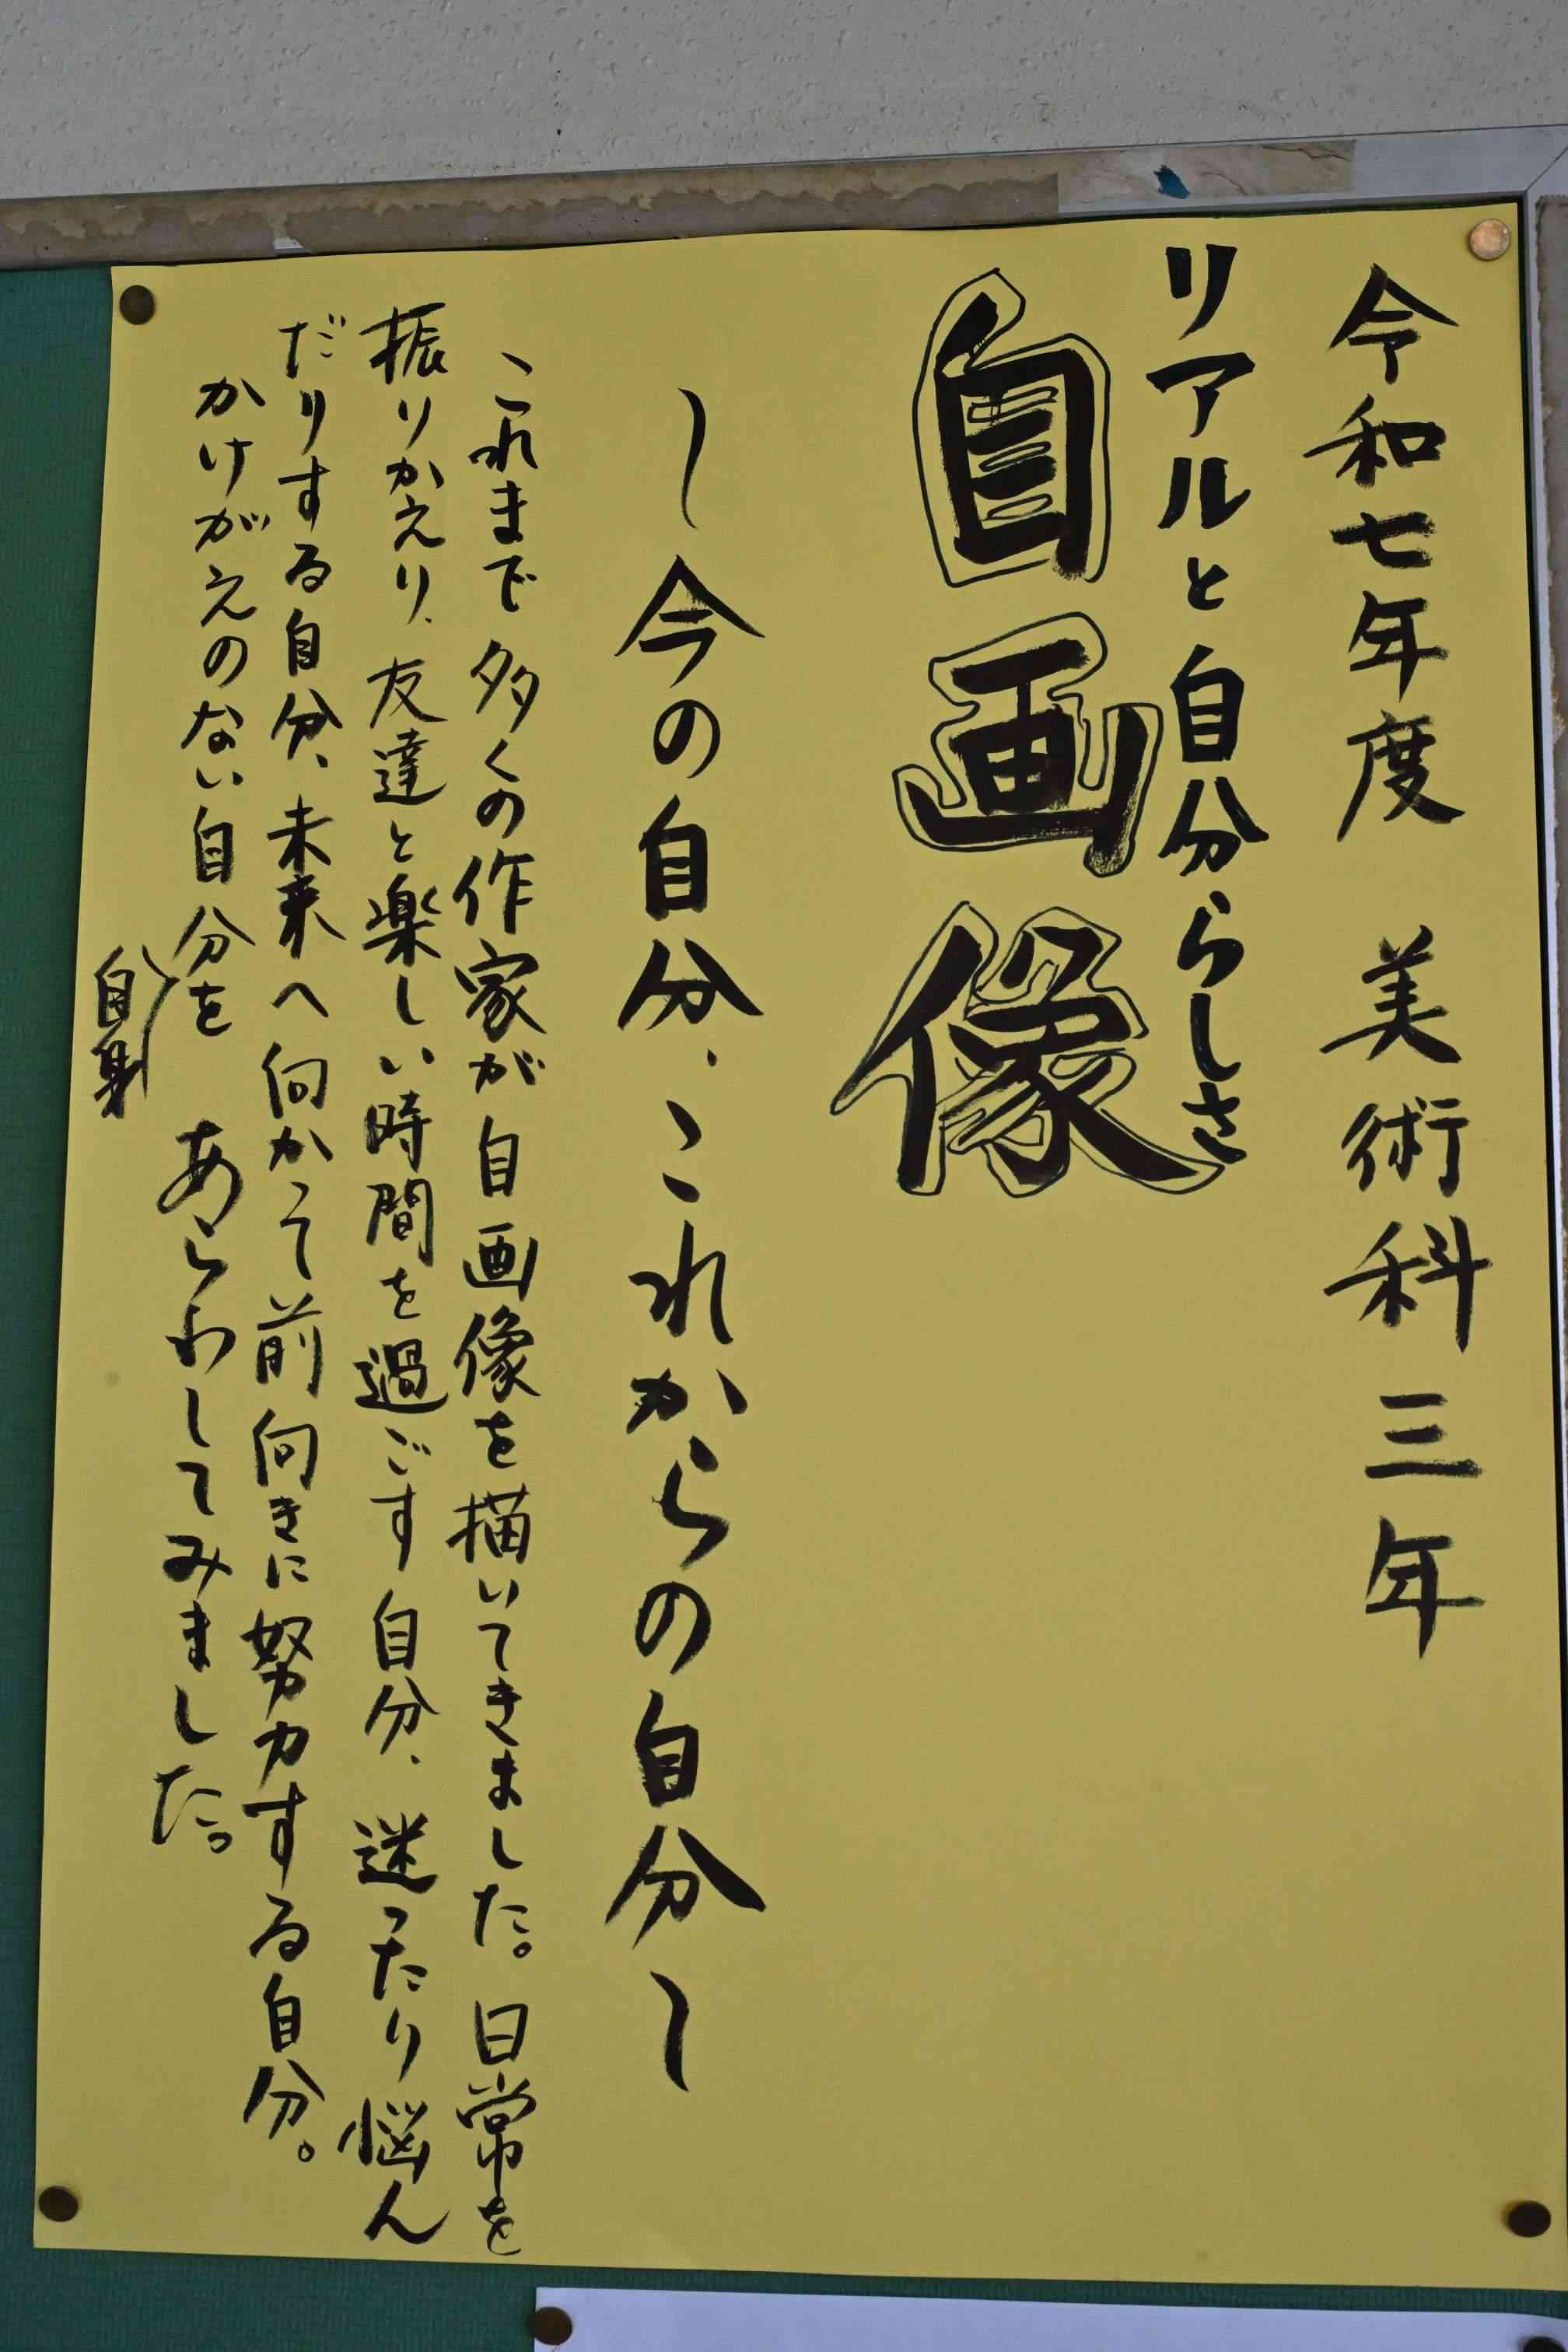 令和七年度 美術科 三年
リアルと自分らしさ
自画像
~今の自分、これからの自分~
これまで多くの作家が自画像を描いてきました。日常を
振りかえり、友達と楽しい時間を過ごす自分、迷ったり悩ん
だりする自分、未来へ向かって前向きに努力する自分。
かけがえのない自分を あらわしてみました。
自身